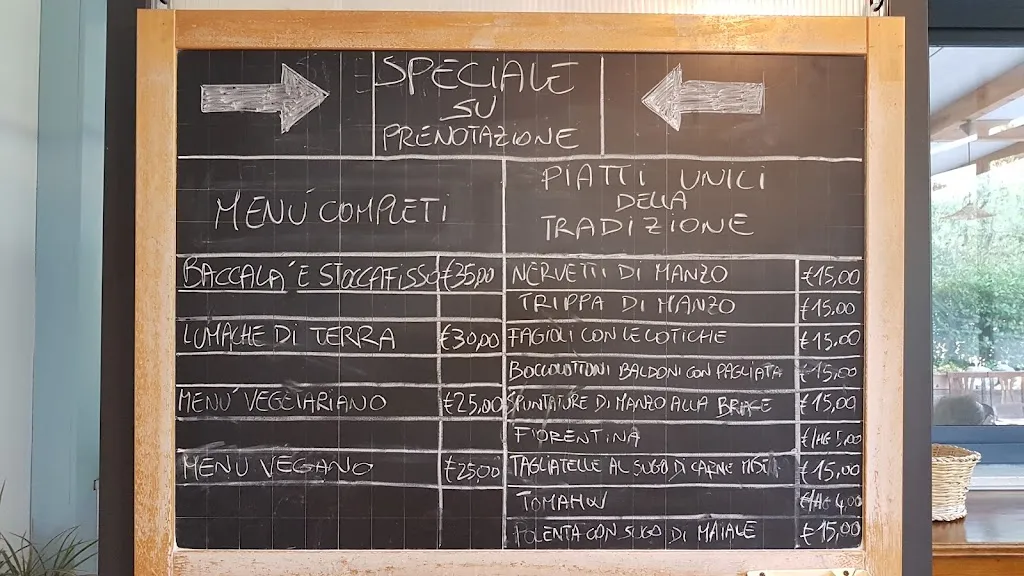 SPECIALE
SU
PRENOTAZIONE
MENÚ COMPLETI
PIATTI UNICI
DELLA
TRADIZIONE
BACCALA' E STOCCAFISSO €35,00
LUMACHE DI TERRA €30,00
MENÚ VEGETARIANO €25,00
MENÚ VEGANO €25,00
NERVETTI DI MANZO €15,00
TRIPPA DI MANZO €15,00
FAGIOLI CON LE COTICHE €15,00
BOCCOLOTTONI BALDONI CON PAGLIATA €15,00
SPUNTATURE DI MANZO ALLA BRACE €15,00
FIORENTINA €/HG 5,00
TAGLIATELLE AL SUGO DI CARNE MISTI €15,00
TOMAHW €/HG 4,00
POLENTA CON SUGO DI MAIALE €15,00